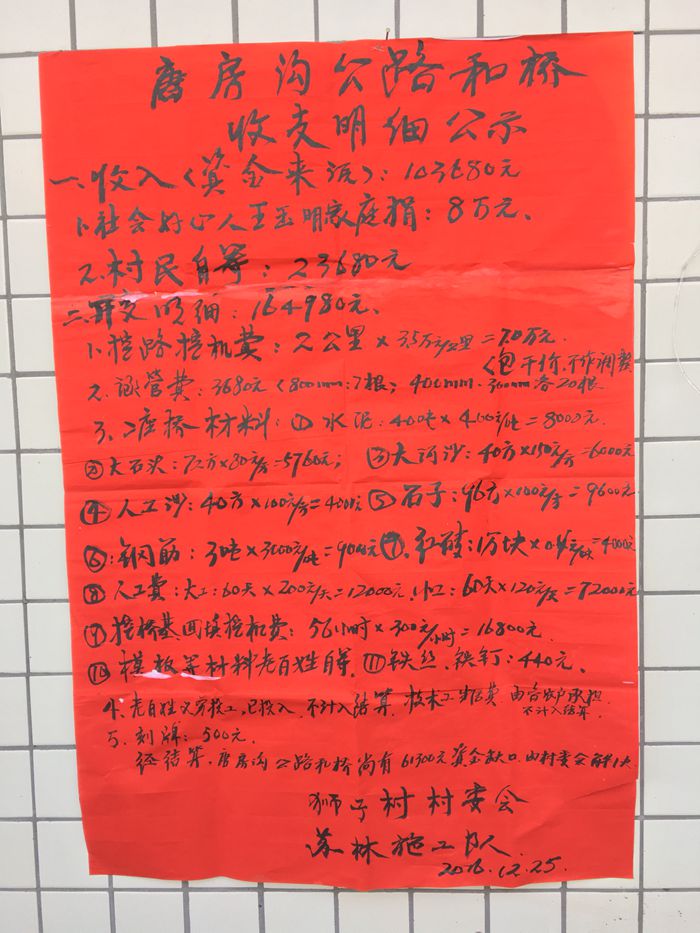 唐房沟公路和桥
收支明细公示
一、收入(资金来沅): 103680元
1、社会好心人王玉明家庭捐: 8万元、
2、村民自筹: 23680元
二、开支明细: 164980元、
1、挖路挖机费: 2公里×3.5万元/公里=7.0万元、
(包干价、不作调整
2、涵管费: 3680元(800mm:7根; 400mm、300mm各20根
3、2座桥材料: ①水泥: 40吨×400元/吨=8000元、
②大石头: 72方×80元/方=5760元; ③大河沙: 40方×150元/方=6000元
④人工沙: 40方×100元/方=4000元 ⑤石子: 96方×100元/方=9600元
⑥: 钢筋: 3吨×3000元/吨=9000元 ⑦、红砖: 1万块×0.4元/块=4000元
⑧人工费: 大工: 60天×200元/天=12000元、小工: 60天×120元/天=72000元
⑨挖桥基回填挖机费: 56小时×300元/小时=16800元、
⑩模板等材料老百姓自筹、⑪铁丝、铁钉: 440元、
4、老百姓义务投工,已投入、不计入结算、技术工生活费、由各农户承担、
不计入结算、
5、刻牌: 500元、
经结算、唐房沟公路和桥尚有61300元资金缺口、由村委会解决
狮子村村委会
苏林施工队
2016.12.25.